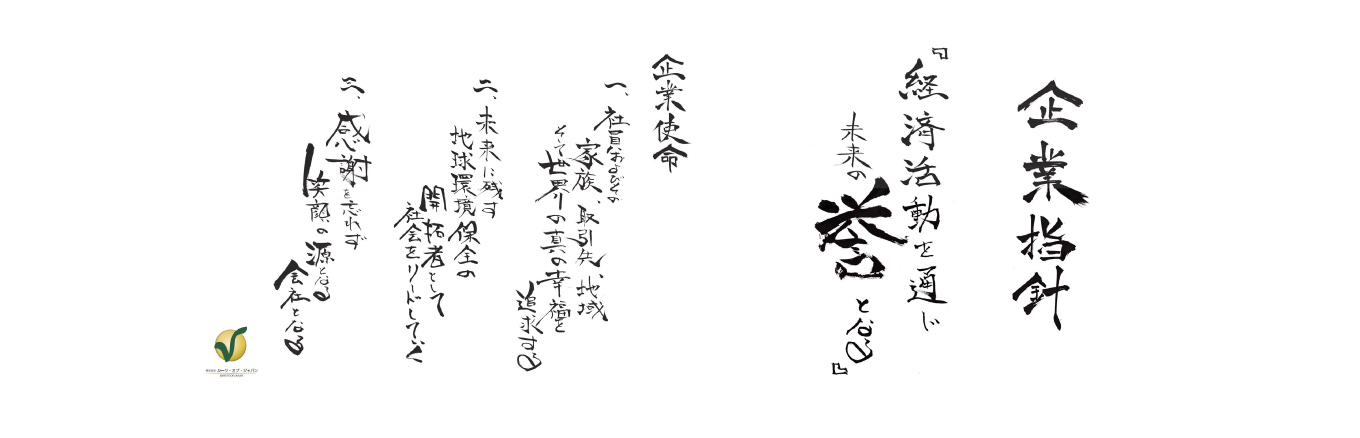 企業指針
『経済活動を通じ
未来の
誉
となる』
企業使命
一、社員およびその
家族、取引先、地域
そして世界の真の幸福を
追求する
二、未来に残す
地球環境保全の
開拓者として
社会をリードしていく
三、感謝を忘れず
笑顔の源となる
会社となる
株式会社 ルーツ・オブ・ジャパン